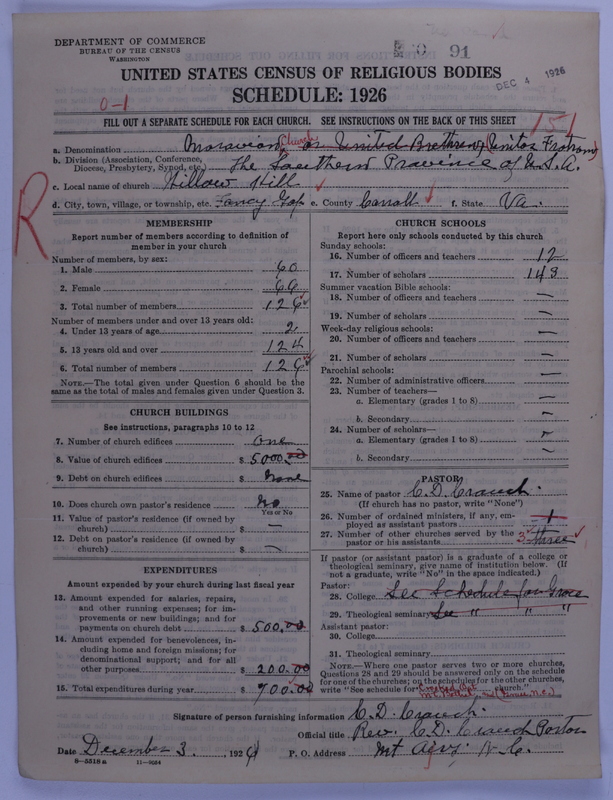 DEPARTMENT OF COMMERCE
BUREAU OF THE CENSUS
WASHINGTON
91
DEC 4 1926
UNITED STATES CENSUS OF RELIGIOUS BODIES
SCHEDULE: 1926
0-1
151
FILL OUT A SEPARATE SCHEDULE FOR EACH CHURCH. SEE INSTRUCTIONS ON THE BACK OF THIS SHEET
R
a. Denomination Moravian Church or United Brethren (Unitas Fratrum)
b. Division (Association, Conference, Diocese, Presbytery, Synod, etc.) The Southern Province of U.S.A.
c. Local name of church Willow Hill
d. City, town, village, or township, etc. Fancy Gap e. County Carroll f. State Va.
MEMBERSHIP
Report number of members according to definition of member in your church
Number of members, by sex:
1. Male 60
2. Female 66
3. Total number of members 126
Number of members under and over 13 years old:
4. Under 13 years of age 2
5. 13 years old and over 124
6. Total number of members 126
NOTE.—The total given under Question 6 should be the same as the total of males and females given under Question 3.
CHURCH BUILDINGS
See instructions, paragraphs 10 to 12
7. Number of church edifices one
8. Value of church edifices $ 5000.00
9. Debt on church edifices $ None
10. Does church own pastor's residence No
Yes or No
11. Value of pastor's residence (if owned by church) $ —
12. Debt on pastor's residence (if owned by church) $ —
EXPENDITURES
Amount expended by your church during last fiscal year
13. Amount expended for salaries, repairs, and other running expenses; for improvements or new buildings; and for payments on church debt $ 500.00
14. Amount expended for benevolences, including home and foreign missions; for denominational support; and for all other purposes $ 200.00
15. Total expenditures during year $ 700.00
CHURCH SCHOOLS
Report here only schools conducted by this church
Sunday schools:
16. Number of officers and teachers 12
17. Number of scholars 148
Summer vacation Bible schools:
18. Number of officers and teachers —
19. Number of scholars —
Week-day religious schools:
20. Number of officers and teachers —
21. Number of scholars —
Parochial schools:
22. Number of administrative officers —
23. Number of teachers—
a. Elementary (grades 1 to 8) —
b. Secondary —
24. Number of scholars—
a. Elementary (grades 1 to 8) —
b. Secondary —
PASTOR
25. Name of pastor C. D. Crouch.
(If church has no pastor, write "None")
26. Number of ordained ministers, if any, employed as assistant pastors 1
27. Number of other churches served by the pastor or his assistants 3 three
If pastor (or assistant pastor) is a graduate of a college or theological seminary, give name of institution below. (If not a graduate, write "No" in the space indicated.)
Pastor:
28. College See Schedule for Grace
29. Theological seminary See " " "
Assistant pastor:
30. College
31. Theological seminary
NOTE.—Where one pastor serves two or more churches, Questions 28 and 29 should be answered only on the schedule for one of the churches; on the schedules for the other churches, write "See schedule for church."
Signature of person furnishing information C. D. Crouch.
Official title Rev. C. D. Crouch Pastor
Date December 3, 1926 P. O. Address Mt Airy N. C.
8—5518a 11—9054